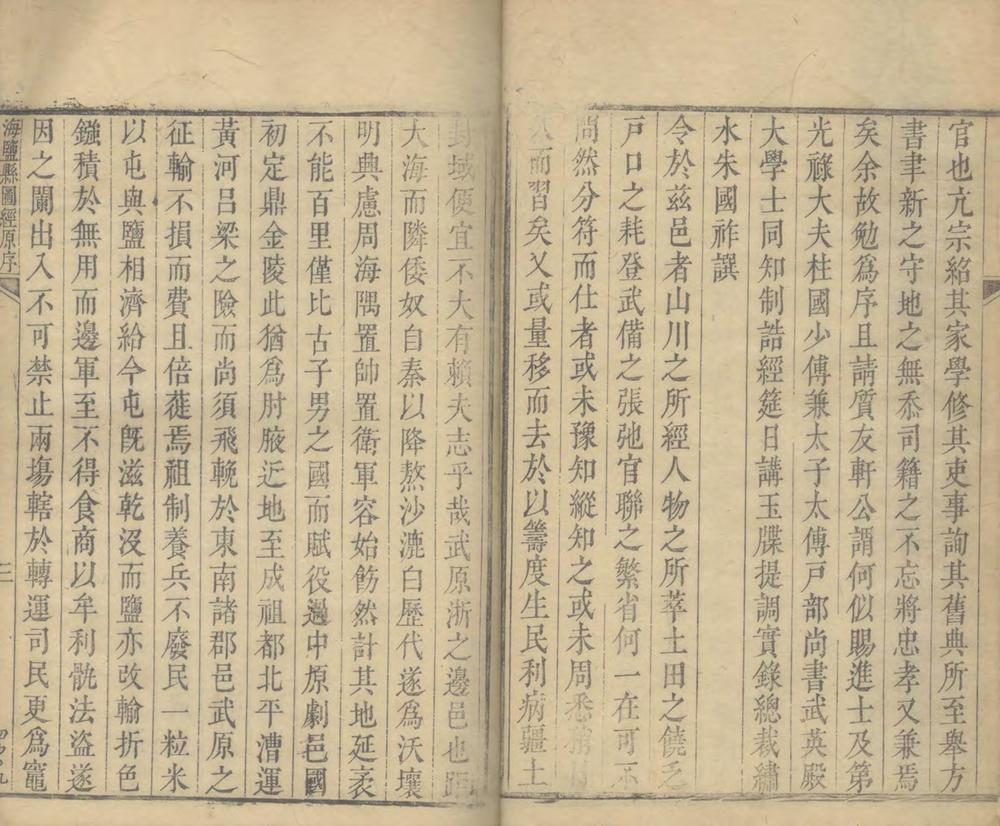 官也亢宗紹其家學修其吏事詢其舊典所至舉方
書聿新之守地之無忝司籍之不忘將忠孝又兼焉
矣余故勉爲序且請質友軒公謂何似賜進士及第
光祿大夫柱國少傅兼太子太傅戶部尚書武英殿
大學士同知制誥經筵日講玉牒提調實錄總裁繡
水朱國祚譔
令於茲邑者山川之所經人物之所萃土田之饒乏
戶口之耗登武備之張弛官聯之繁省何一在可不
問然分符而仕者或未豫知縱知之或未周悉
而習矣又或量移而去於以籌度生民利病疆土
封域便宜不大有賴夫志乎哉武原浙之邊邑也距
大海而隣倭奴自秦以降熬沙漉白歷代遂爲沃壤
明興慮周海隅置帥置衛軍容始飭然計其地延袤
不能百里僅比古子男之國而賦役過中原劇邑國
初定鼎金陵此猶爲肘腋近地至成祖都北平漕運
黃河呂梁之險而尚須飛輓於東南諸郡邑武原之
征輸不損而費且倍蓰焉祖制養兵不廢民一粒米
以屯與鹽相濟給今屯旣滋乾沒而鹽亦改輸折色
鏹積於無用而邊軍至不得食商以牟利骫法盜遂
因之闌出入不可禁止兩塲轄於轉運司民更爲竈
海鹽縣圖經原序
三